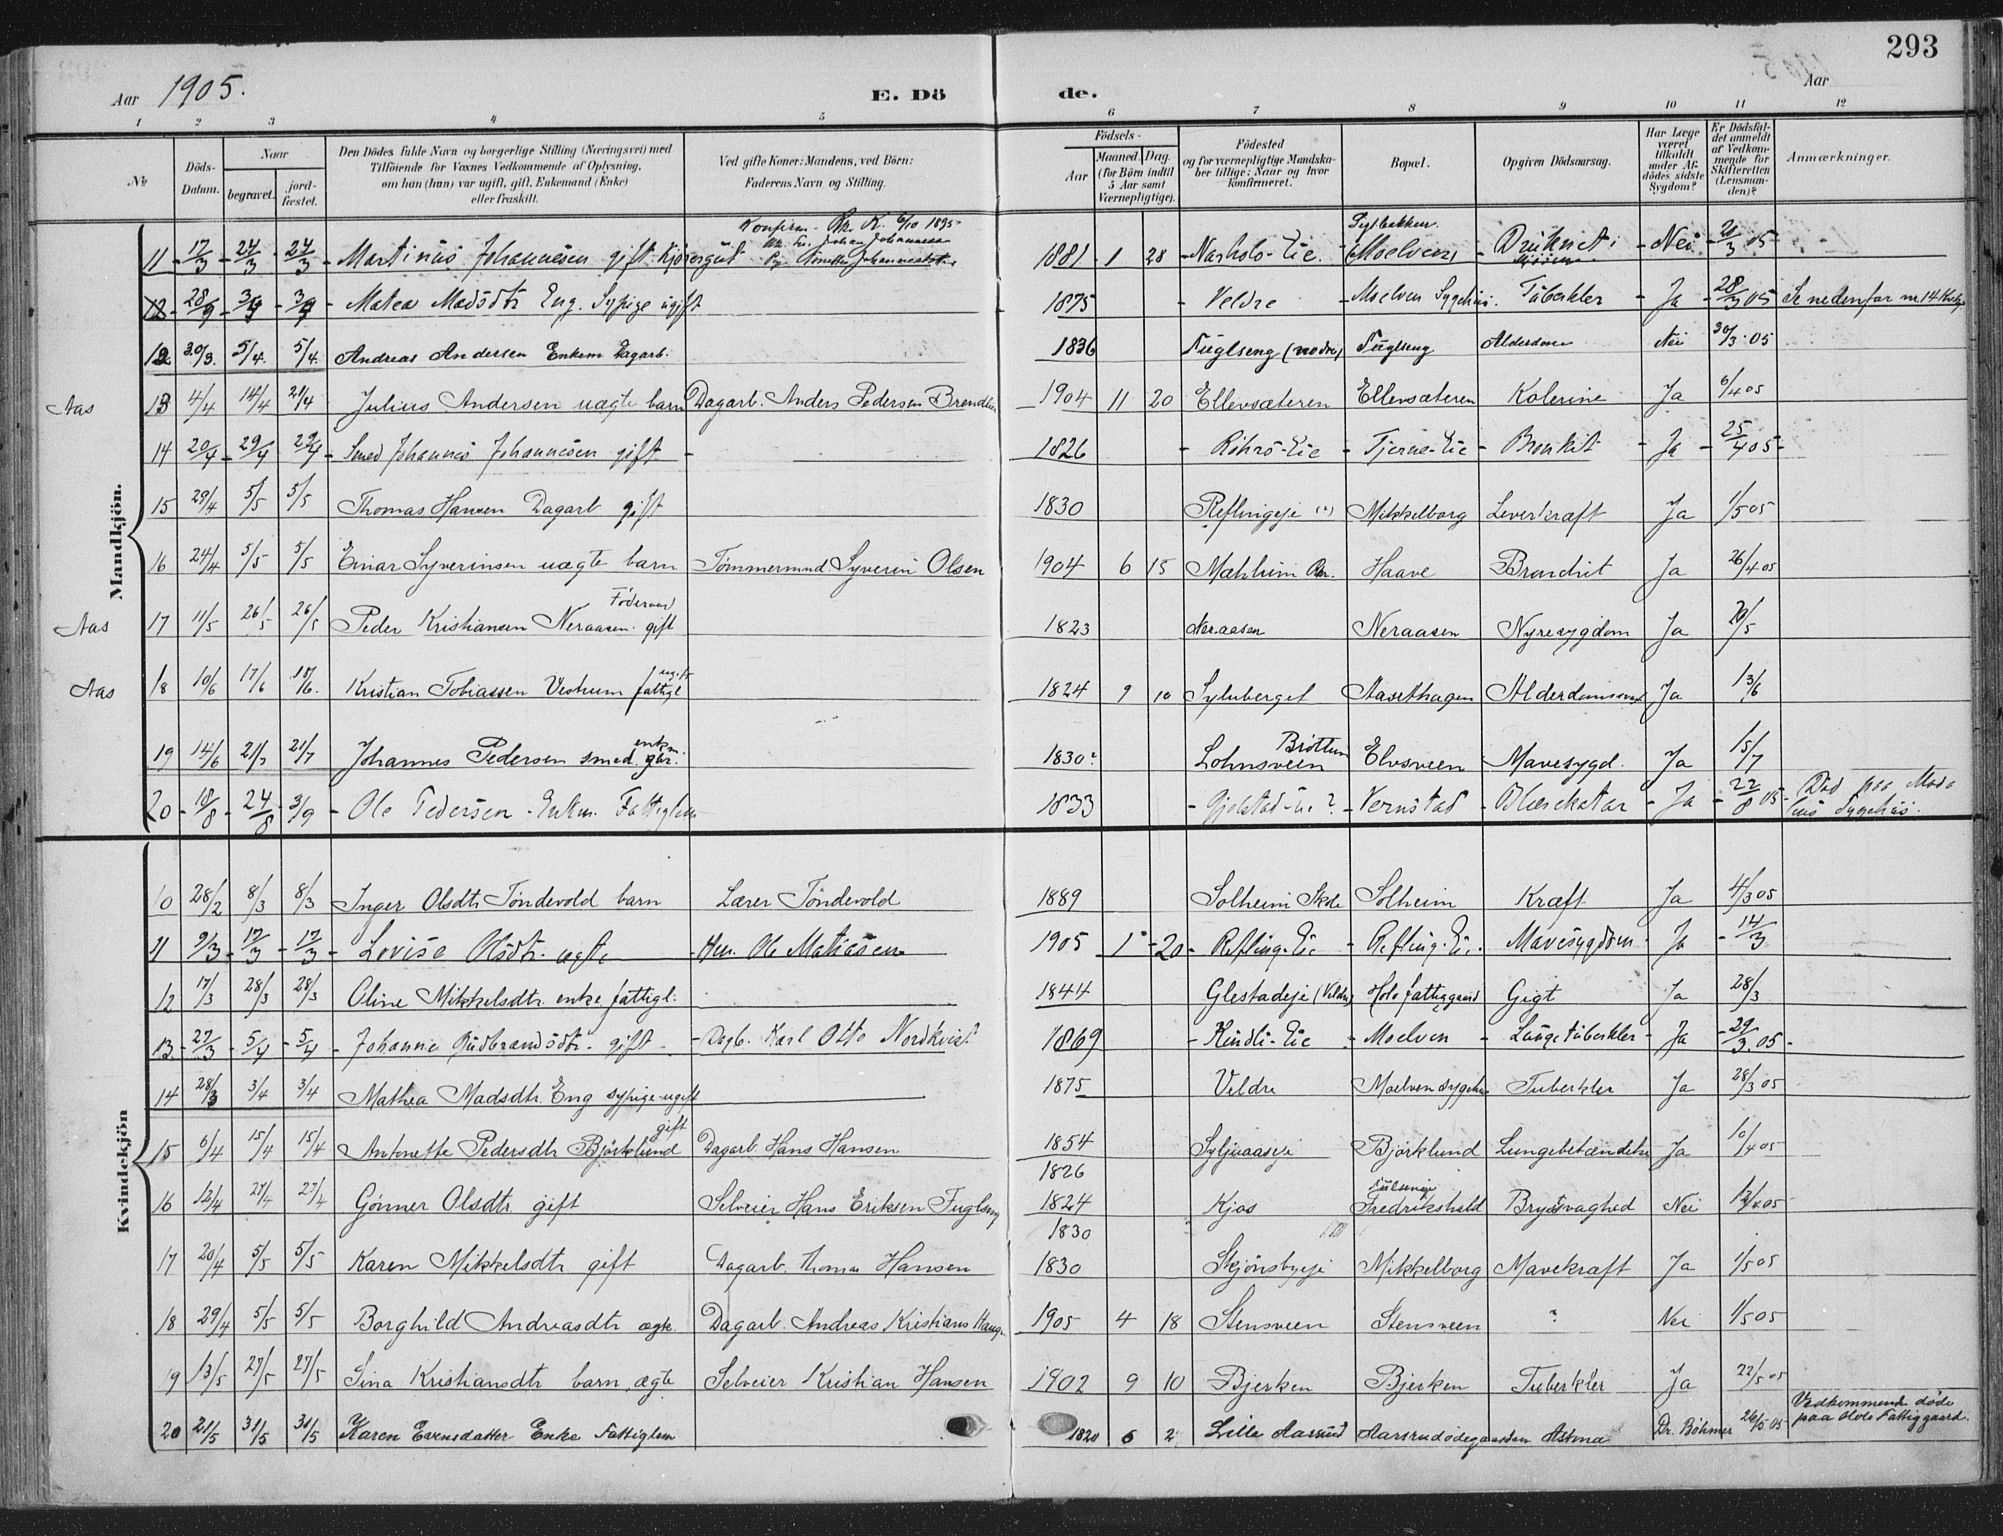 293
Aar 1905.
E. Dö de.
Aar
1 2 3 4 5 6 7 8 9 10 11 12
No.
Döds-Datum.
Naar
begravet.
jord-fæstet.
Den Dödes fulde Navn og borgerlige Stilling (Næringsvei) med Tilföiende for Voxnes Vedkommende af Oplysning, om han (hun) var ugift, gift, Enkemand (Enke) eller fraskilt.
Ved gifte Koner: Mandens, ved Börn: Faderens Navn og Stilling.
Födsels-
Aar
Maaned. Dag.
(for Börn indtil 5 Aar samt Værnepligtige).
Födested og for værnepligtige Mandskaber tillige: Naar og hvor konfirmeret.
Bopæl.
Opgiven Dödsaarsag.
Har Læge været tilkaldt under Afdödes sidste Sygdom?
Er Dödsfaldet anmeldt af Vedkommende for Skifteretten (Lensmanden)?
Anmærkninger.
Mandkjön.
Konfirm. Rk. K. 6/10 1895
11 17/3 24/3 24/3 Martinus Johannesen gift 1881 1 28 Moelven Nei 20/3 05
12 Matea Madsdtr Eng. Sypige ugift 1875 Veldre Moelven Sygehus Tuberkler Ja 28/3 05 Se nedenfor nr 14
12 30/3 5/4 5/4 Andreas Andersen Enkem Dagarb. 1836 Fuglseng (nodre) Fuglseng Alderdom Nei 30/3 05
Aas 13 4/4 14/4 21/4 Julius Andersen uægte barn Dagarb. Anders Pedersen 1904 11 20 Ellevsæteren Ellevsæteren Kolerine Ja 6/4 05
14 20/4 29/4 29/4 Smed Johannes Johannesen gift 1826 Tjerne-Eie Bronkit Ja 25/4 05
15 29/4 5/5 5/5 Thomas Hansen Dagarb gift 1830 Reflingeje Mikkelborg Leverkræft Ja 1/5 05
16 24/4 5/5 5/5 Einar Syverinsen uægte barn Tømmermnd. Syverin Olsen 1904 6 15 Haave Ja 26/4 05
Aas 17 11/5 26/5 26/5 Peder Kristiansen Neraasen gift 1823 Neraasen Neraasen Nyresygdom Ja
Aas 18 10/6 17/6 Kristian Tobiassen ugift fattigl 1824 9 10 Syluberget Aasethagen Ja 13/6
19 14/6 Johannes Pedersen smed enkm. 1830? Brøttum Elvsveen Mavesygd. Ja 15/7
20 18/8 24/8 3/9 Ole Pedersen Enkm. Fattiglem 1833 Vernstad Blærekatar Ja 22/8 05
Kvindekjön
10 28/2 8/3 8/3 Inger Olsdtr Töndevold barn Lærer Töndevold 1889 Solheim Skole Solheim Kræft Ja 4/3 05
11 9/3 17/3 17/3 Lovise Olsdtr. ægte Ole Matiasen 1905 1 20 Refling-Eie Refling-Eie Mavesygdom Ja 14/3
12 17/3 28/3 28/3 Oline Mikkelsdtr. enke fattigl. 1844 Glestadeje (Veldre) Hols fattiggaard Gigt Ja 28/3
13 27/3 5/4 5/4 Johanne Gudbrandsdtr. gift Dagb. Karl Otto Nordkvist 1869 Kindli-Eie Moelven Lungetuberkler Ja 29/3 05
14 28/3 3/4 3/4 Mathea Madsdtr. Eng sypige ugift 1875 Veldre Moelven sygehus Tuberkler Ja 28/3 05
15 6/4 15/4 15/4 Antonette Pedersdtr Björklund gift Dagarb. Hans Hansen 1854 Björklund Lungebetændelse Ja 10/4 05
1826
16 12/4 27/4 27/4 Gönner Olsdtr. gift Selveier Hans Eriksen Fuglseng 1824 Kjos Fredrikshald Brystsvaghed Nei 12/4 05
1830
17 20/4 5/5 5/5 Karen Mikkelsdtr gift Dagarb. Thomas Hansen 1830 Skjönsbyeje Mikkelborg Mavekræft Ja 1/5 05
18 29/4 5/5 5/5 Borghild Andreasdtr ægte. Dagarb. Andreas Kristians 1905 4 18 Stensveen Stensveen ? Nei 1/5 05
19 13/5 27/5 27/5 Sina Kristiansdtr barn, ægte Selveier Kristian Hansen 1902 9 10 Bjerken Bjerken Tuberkler Ja 22/5 05
20 21/5 31/5 31/5 Karen Evensdatter Enke Fattiglem 1820 6 2 Lille Aasrud Astma Dr. Böhmer 26/5 05 Vedkommende døde paa Fattiggaard.